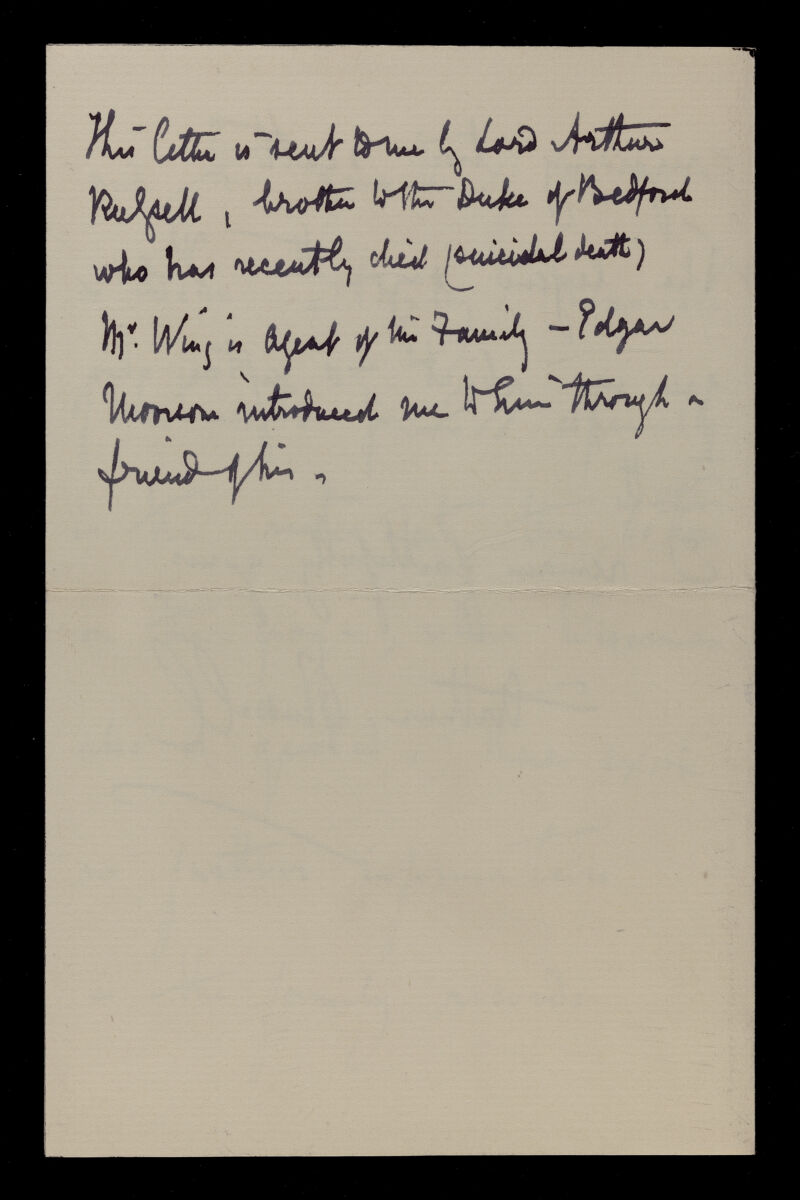 This letter is sent to me by Lord Arthur
Russell, brother to the Duke of Bedford
who has recently died (suicidal death)
Mr. Wing is agent of his Family – Edgar
introduced me to him through a
friend of his.